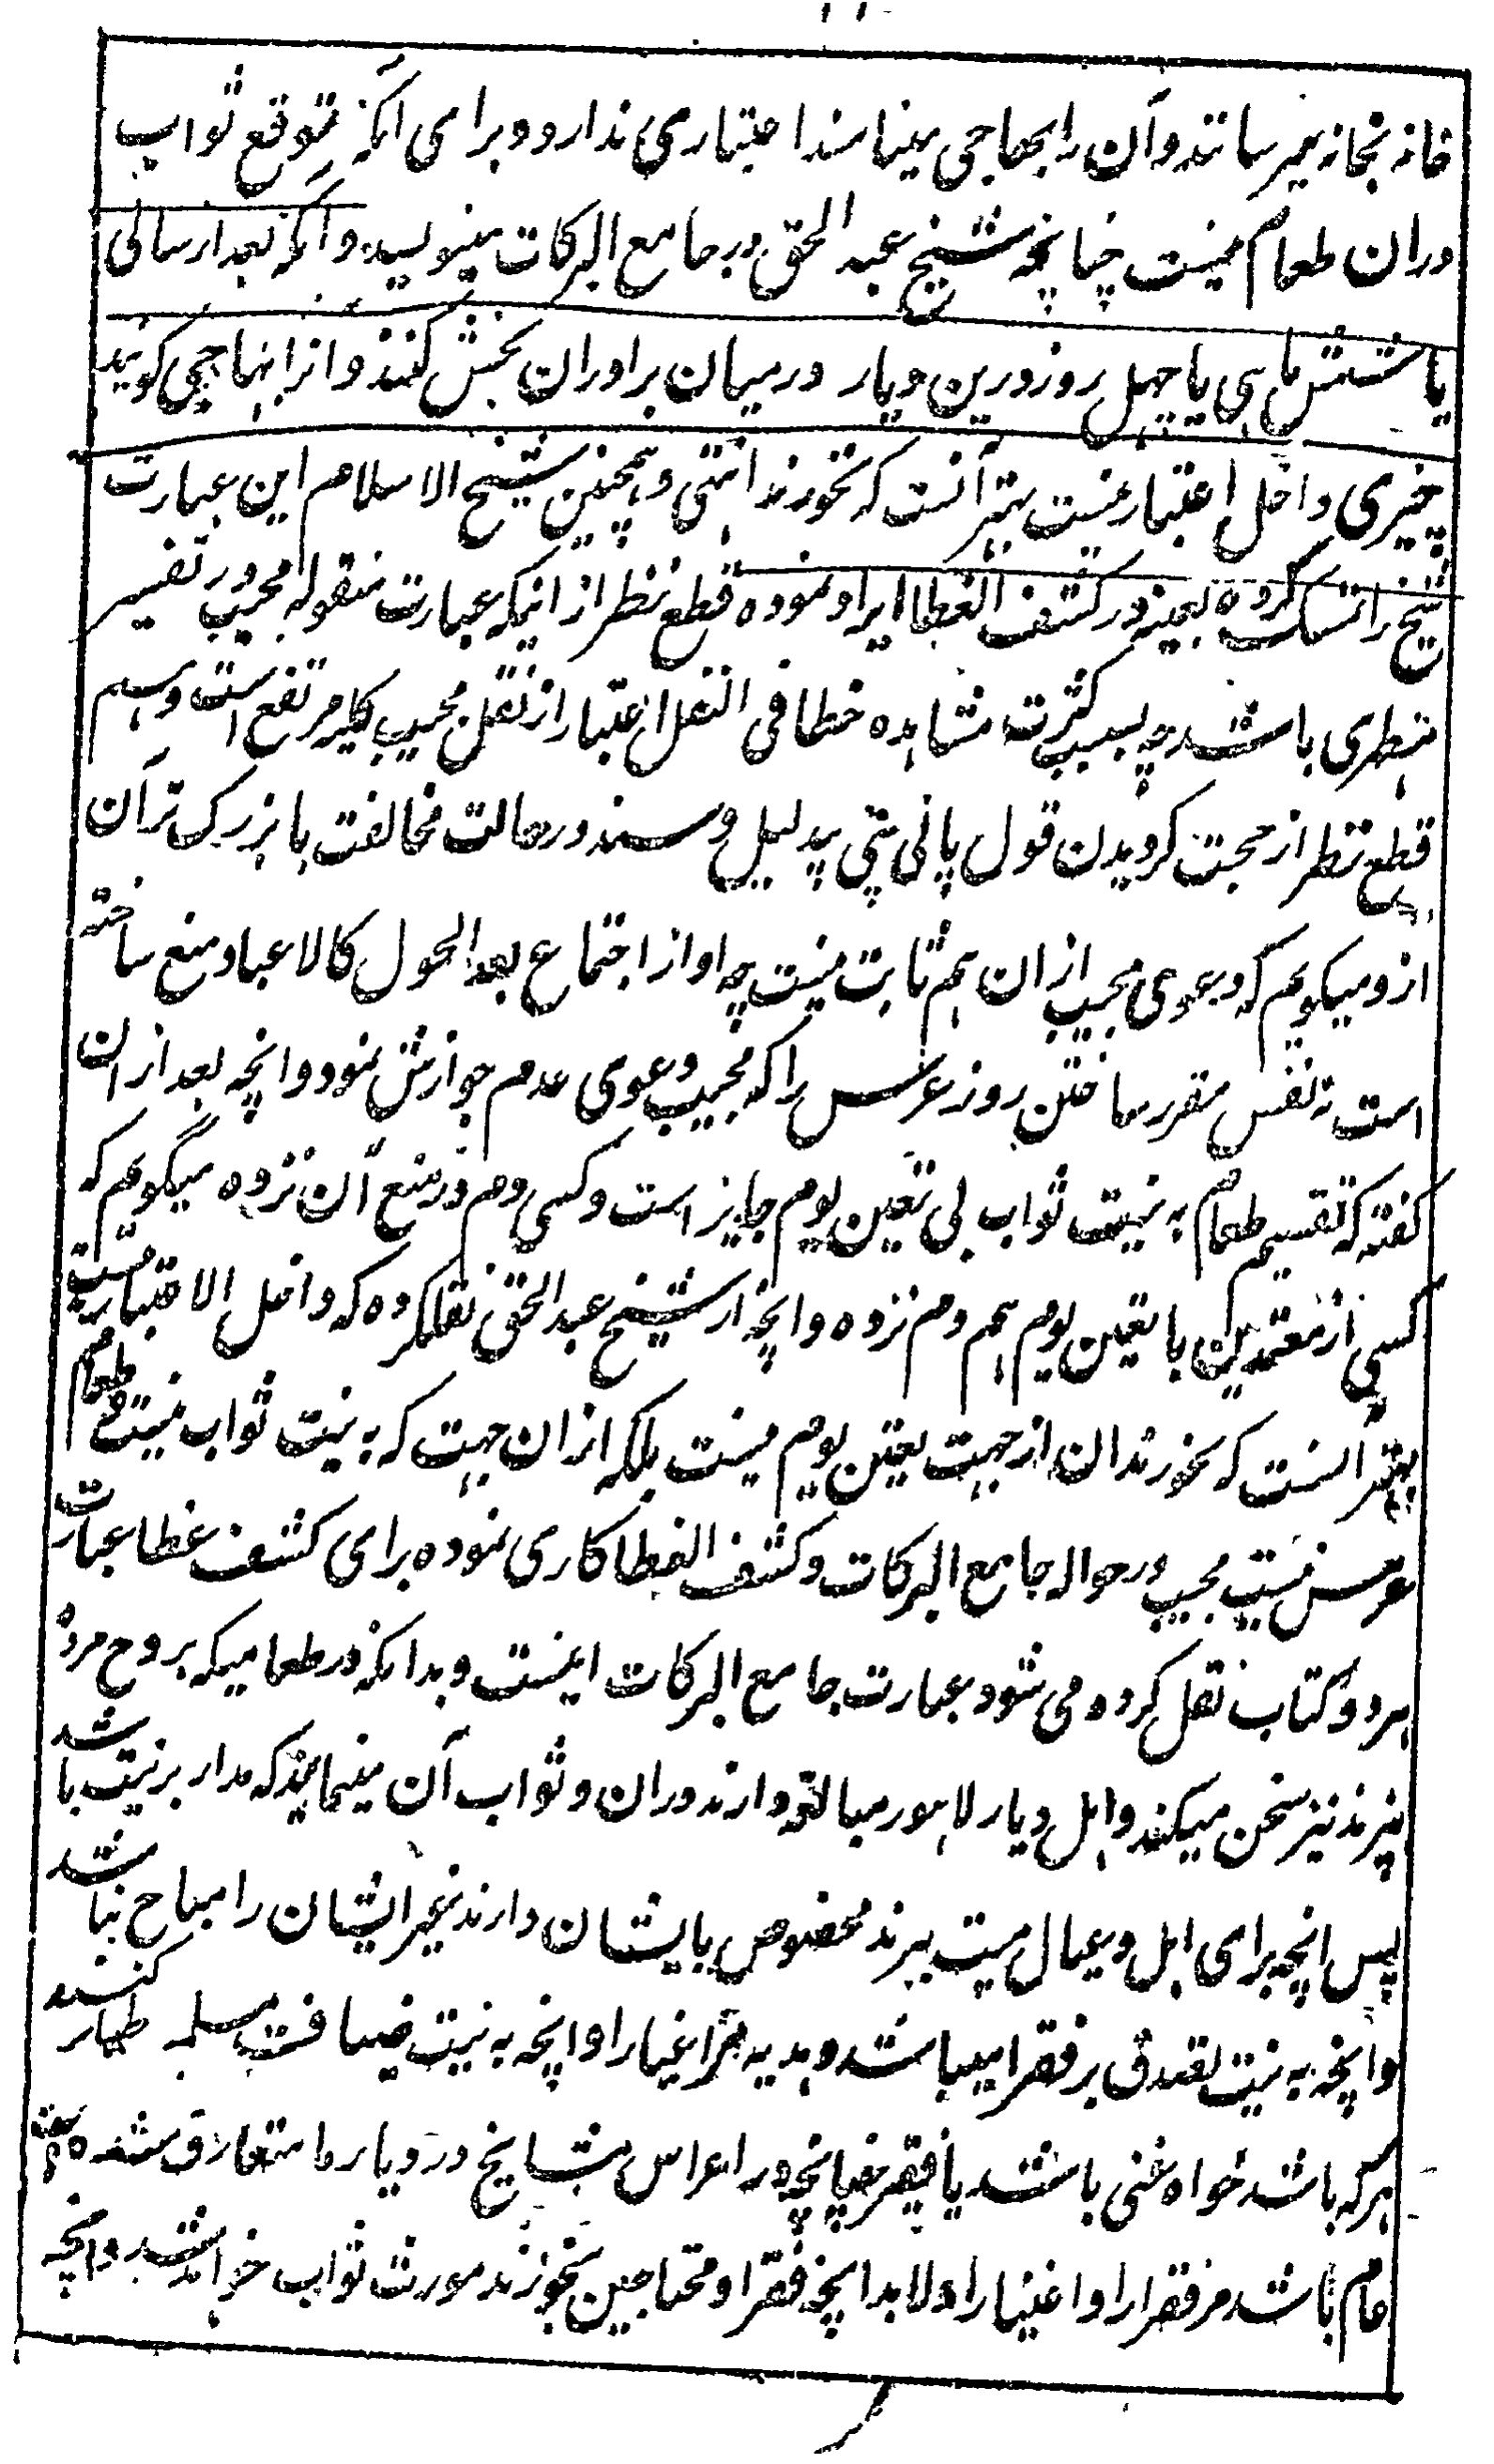 خانه بخانه میرسانند وآن را بهاجی مینامند اعتباری ندارد و برای آنکه توقع ثواب
دران طعام نیست چنانچه شیخ عبد الحق در جامع البرکات مینویسد و آنکه بعد از سالی
یا ششماهی یا چهل روز درین دیار درمیان برادران بخش کنند و انرا بهاجی گویند
چیزی داخل اعتبار نیست بهتر آنست که نخورند انتهی و همچنین شیخ الاسلام این عبارت
شیخ را تمسک کرده بعینه در کشف الغطا ایراد نموده قطع نظر از اینکه عبارت منقوله مجیب در تفسیر
مظهری باشد چه بسبب کثرت مشاهده خطا فی النقل اعتبار از نقل مجیب بکلیه مرتفع است و هم
قطع نظر از حجت گردیدن قول پانی پتی بیدلیل و سند در حالت مخالفت با بزرگ تر آن
ازو میگویم که دعوی مجیب ازان هم ثابت نیست چه او از اجتماع بعد الحول کالاعیاد منع ساخته
است نه نفس مقرر ساختن روز عرس را که مجیب دعوی عدم جوازش نمود و انچه بعد ازان
گفته که تقسیم طعام به نیت ثواب بی تعین یوم جایز است و کسی دم در منع آن نزده میگویم که
کسی از معتمدین با تعین یوم هم دم نزده و انچه از شیخ عبد الحق نقلکرده که داخل الاعتبار نیست
بهتر آنست که نخورند ان از جهت تعین یوم نیست بلکه ازان جهت که به نیت ثواب نیست و طعام
عرس نیست مجیب در حواله جامع البرکات و کشف الغطا کاری نموده برای کشف غطا عبارت
هر دو کتاب نقل کرده می شود عبارت جامع البرکات اینست و بدانکه در طعامیکه بروح مرده
پزند نیز سخن میکنند و اهل دیار لاهور مبالغه دارند دران و ثواب آن مینمایند که مدار بر نیت باشد
پس انچه برای اهل و عیال میت پزند مخصوص بایشان دارند غیر ایشان را مباح نباشد
وانچه به نیت تصدق بر فقرا میباشد و هدیه مر اغنیا را و انچه به نیت ضیافت کنند
هر که باشد خواه غنی باشد یا فقیر چنانچه در اعراس مشایخ در دیار ما متعارف شده است
عام باشد مر فقرا را و اغنیا را و لابد انچه فقرا و محتاجین بخورند مورث ثواب خواهد شد و انچه